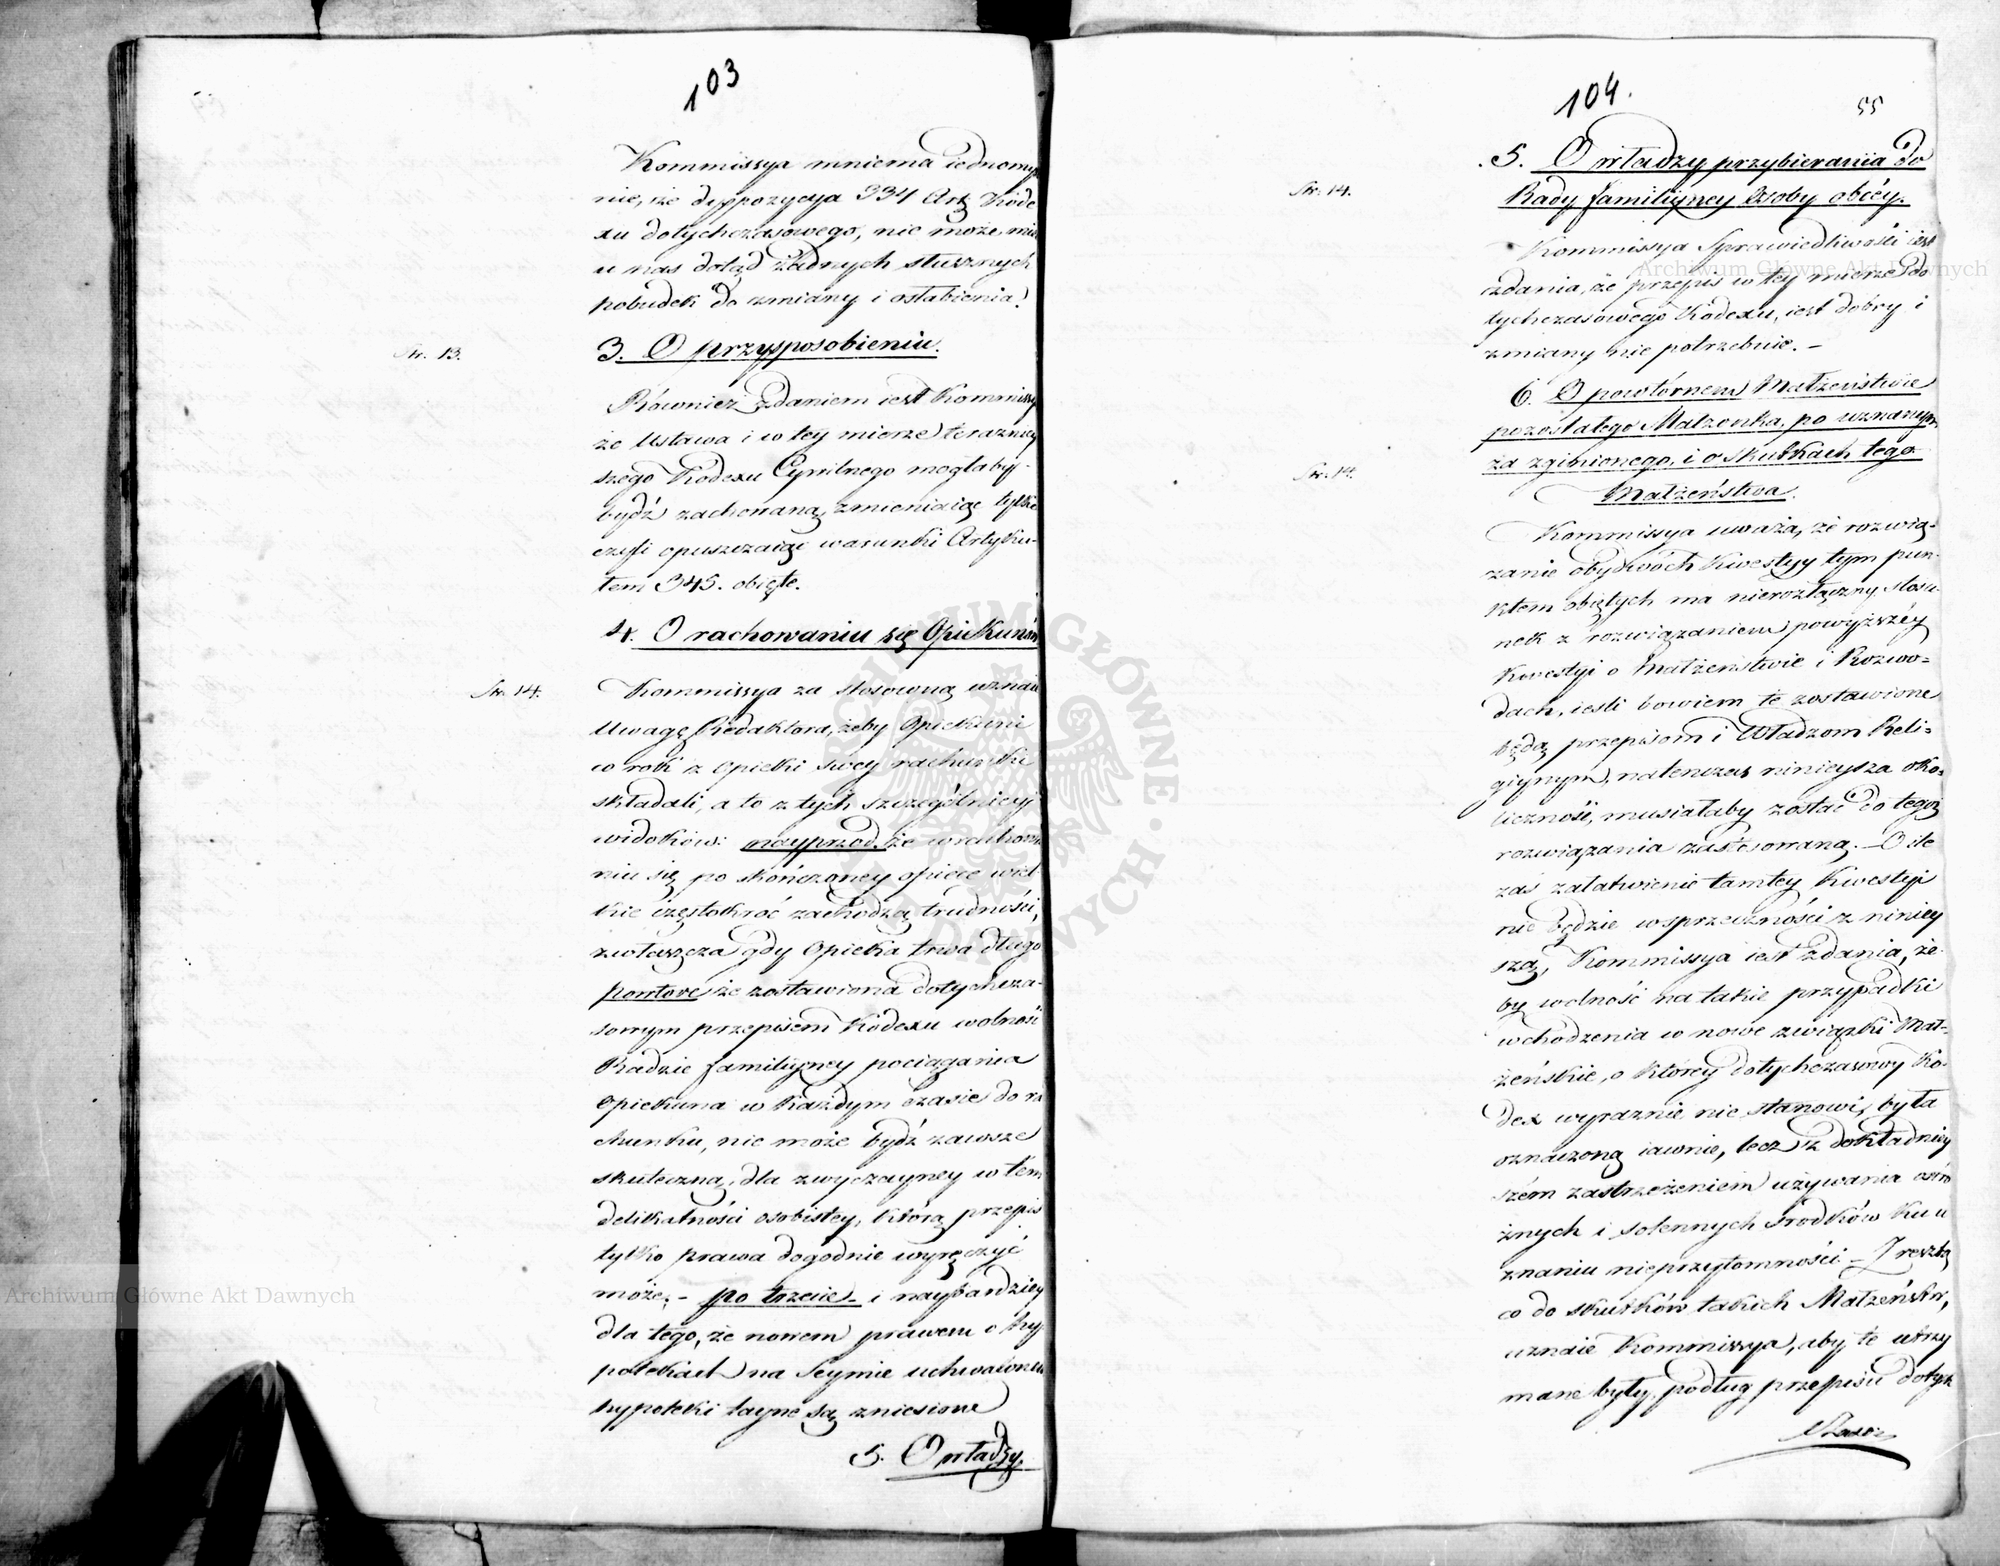 103
Kommissya mniema iednomyś
nie, że dyspozycya 334 Art Kode
xu dotychczasowego, nie może mieć
u nas dotąd żadnych słusznych
pobudek do zmiany i osłabienia.
Str. 13.
3. O przysposobieniu.
Również zdaniem iest Kommissyi
że Ustawa i w tey mierze terazniey
szego Kodexu Cywilnego mogłaby
bydź zachowaną, zmieniaiąc tylko
czyli opuszczaiąc warunki Artyku-
łem 345. obięte.
4. O rachowaniu się Opiekunów
Str. 14.
Kommissya za stosowną uznaie
Uwagę Redaktora, żeby Opiekuni
co rok z opieki swey rachunki
składali, a to z tych szczególniey
widoków: nayprzod, że w rachowa
niu się po skończoney opiece wiel
kie częstokroć zachodzą trudności,
zwłaszcza gdy Opieka trwa długo
powtore że zostawiona dotychcza-
sowym przepisem Kodexu wolność
Radzie familiyney pociągania
Opiekuna w każdym czasie do ra
chunku, nie może bydź zawsze
skuteczną, dla zwyczayney w tem
delikatności osobistey, którą przepis
tylko prawa dogodnie wyręczyć
może. - po trzecie - i naybardziey
dla tego, że nowem prawem o hy
potekach na Seymie uchwalonem
hypoteki tayne są zniesione
5. O władzy.
104.
55
Str. 14.
5. O władzy przybierania do
Rady familiyney Osoby obcéy.
Kommissya Sprawiedliwości iest
zdania, że przepis w tey mierze do
tychczasowego Kodexu, iest dobry i
zmiany nie potrzebuie. -
Str. 14.
6. O powtórnem Małżeństwie
pozostałego Małżonka, po uznanym
za zginionego, i o skutkach tego
Małżeństwa.
Kommissya uważa, że rozwią-
zanie obydwóch Kwestyy tym pun-
ktem obiętych ma nierozłączny stosu-
nek z rozwiązaniem powyższéy
Kwestyi o Małżeństwie i Rozwo-
dach, iesli bowiem te zostawione
będą przepisom i Władzom Reli-
giynym, natenczas ninieysza oko-
liczność, musiałaby zostać do tegoż
rozwiązania zastosowaną. - O ile
zaś załatwienie tamtey Kwestyi
nie będzie w sprzeczności z niniey
szą, Kommissya iest zdania, że-
by wolność na takie przypadki
wchodzenia w nowe związki Mał-
żeńskie, o którey dotychczasowy Ko-
dex wyraznie nie stanowi, była
oznaczoną iawnie, lecz z dokładniey
szém zastrzeżeniem używania ostro
żnych i solennych środków ku u
znaniu nieprzytomności - Zresztą
co do skutków takich Małżeństw,
uznaie Kommissya, aby te utrzy
mane były podług przepisu dotych
czasow
Archiwum Główne Akt Dawnych
Archiwum Główne Akt Dawnych
ARCHIWUM GŁÓWNE AKT DAWNYCH